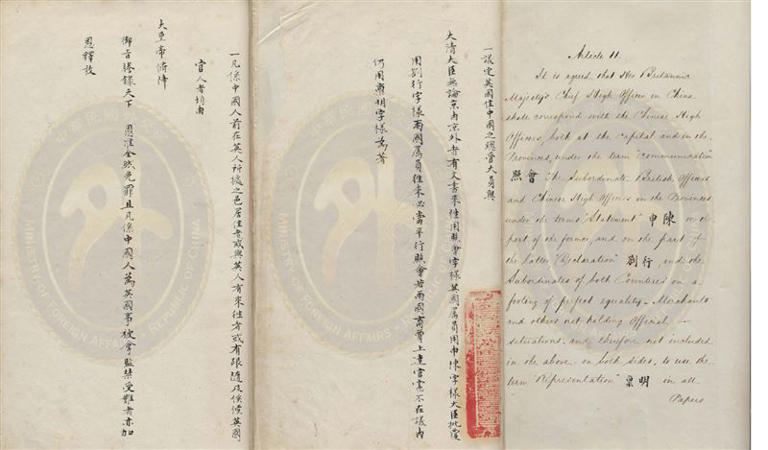 Article 11.
It is agreed that Her Britannic
Majesty's Chief High Officer in China
shall correspond with the Chinese High
Officers, both at the Capital and in the
Provinces, under the term "Communication"
照會 The Subordinate British Officers
and Chinese High Officers in the Provinces
under the terms "Statement" 申陳 on the
part of the former, and on the part of
the latter "Declaration" 劄行, and the
Subordinates of both Countries on a
footing of perfect equality_ Merchants
and others not holding Official
situations and, therefore, not included
in the above, on both sides, to use the
term "Representation" 稟明 in all
Papers
一議定英國住中國之總管大員與
大清大臣無論京內京外者有文書來往用照會字樣英國屬員用申陳字樣大臣批覆
用劄行字樣兩國屬員往來必當平行照會若兩國商賈上達官憲不在議內
仍用稟明字樣為著
一凡係中國人前在英人所據之邑居住者或與英人有來往者或有跟隨及俟候英國
官人者均由
大皇帝俯降
御旨謄錄天下 恩准全然免罪且凡係中國人為英國事被拏監禁受難者亦加
恩釋放